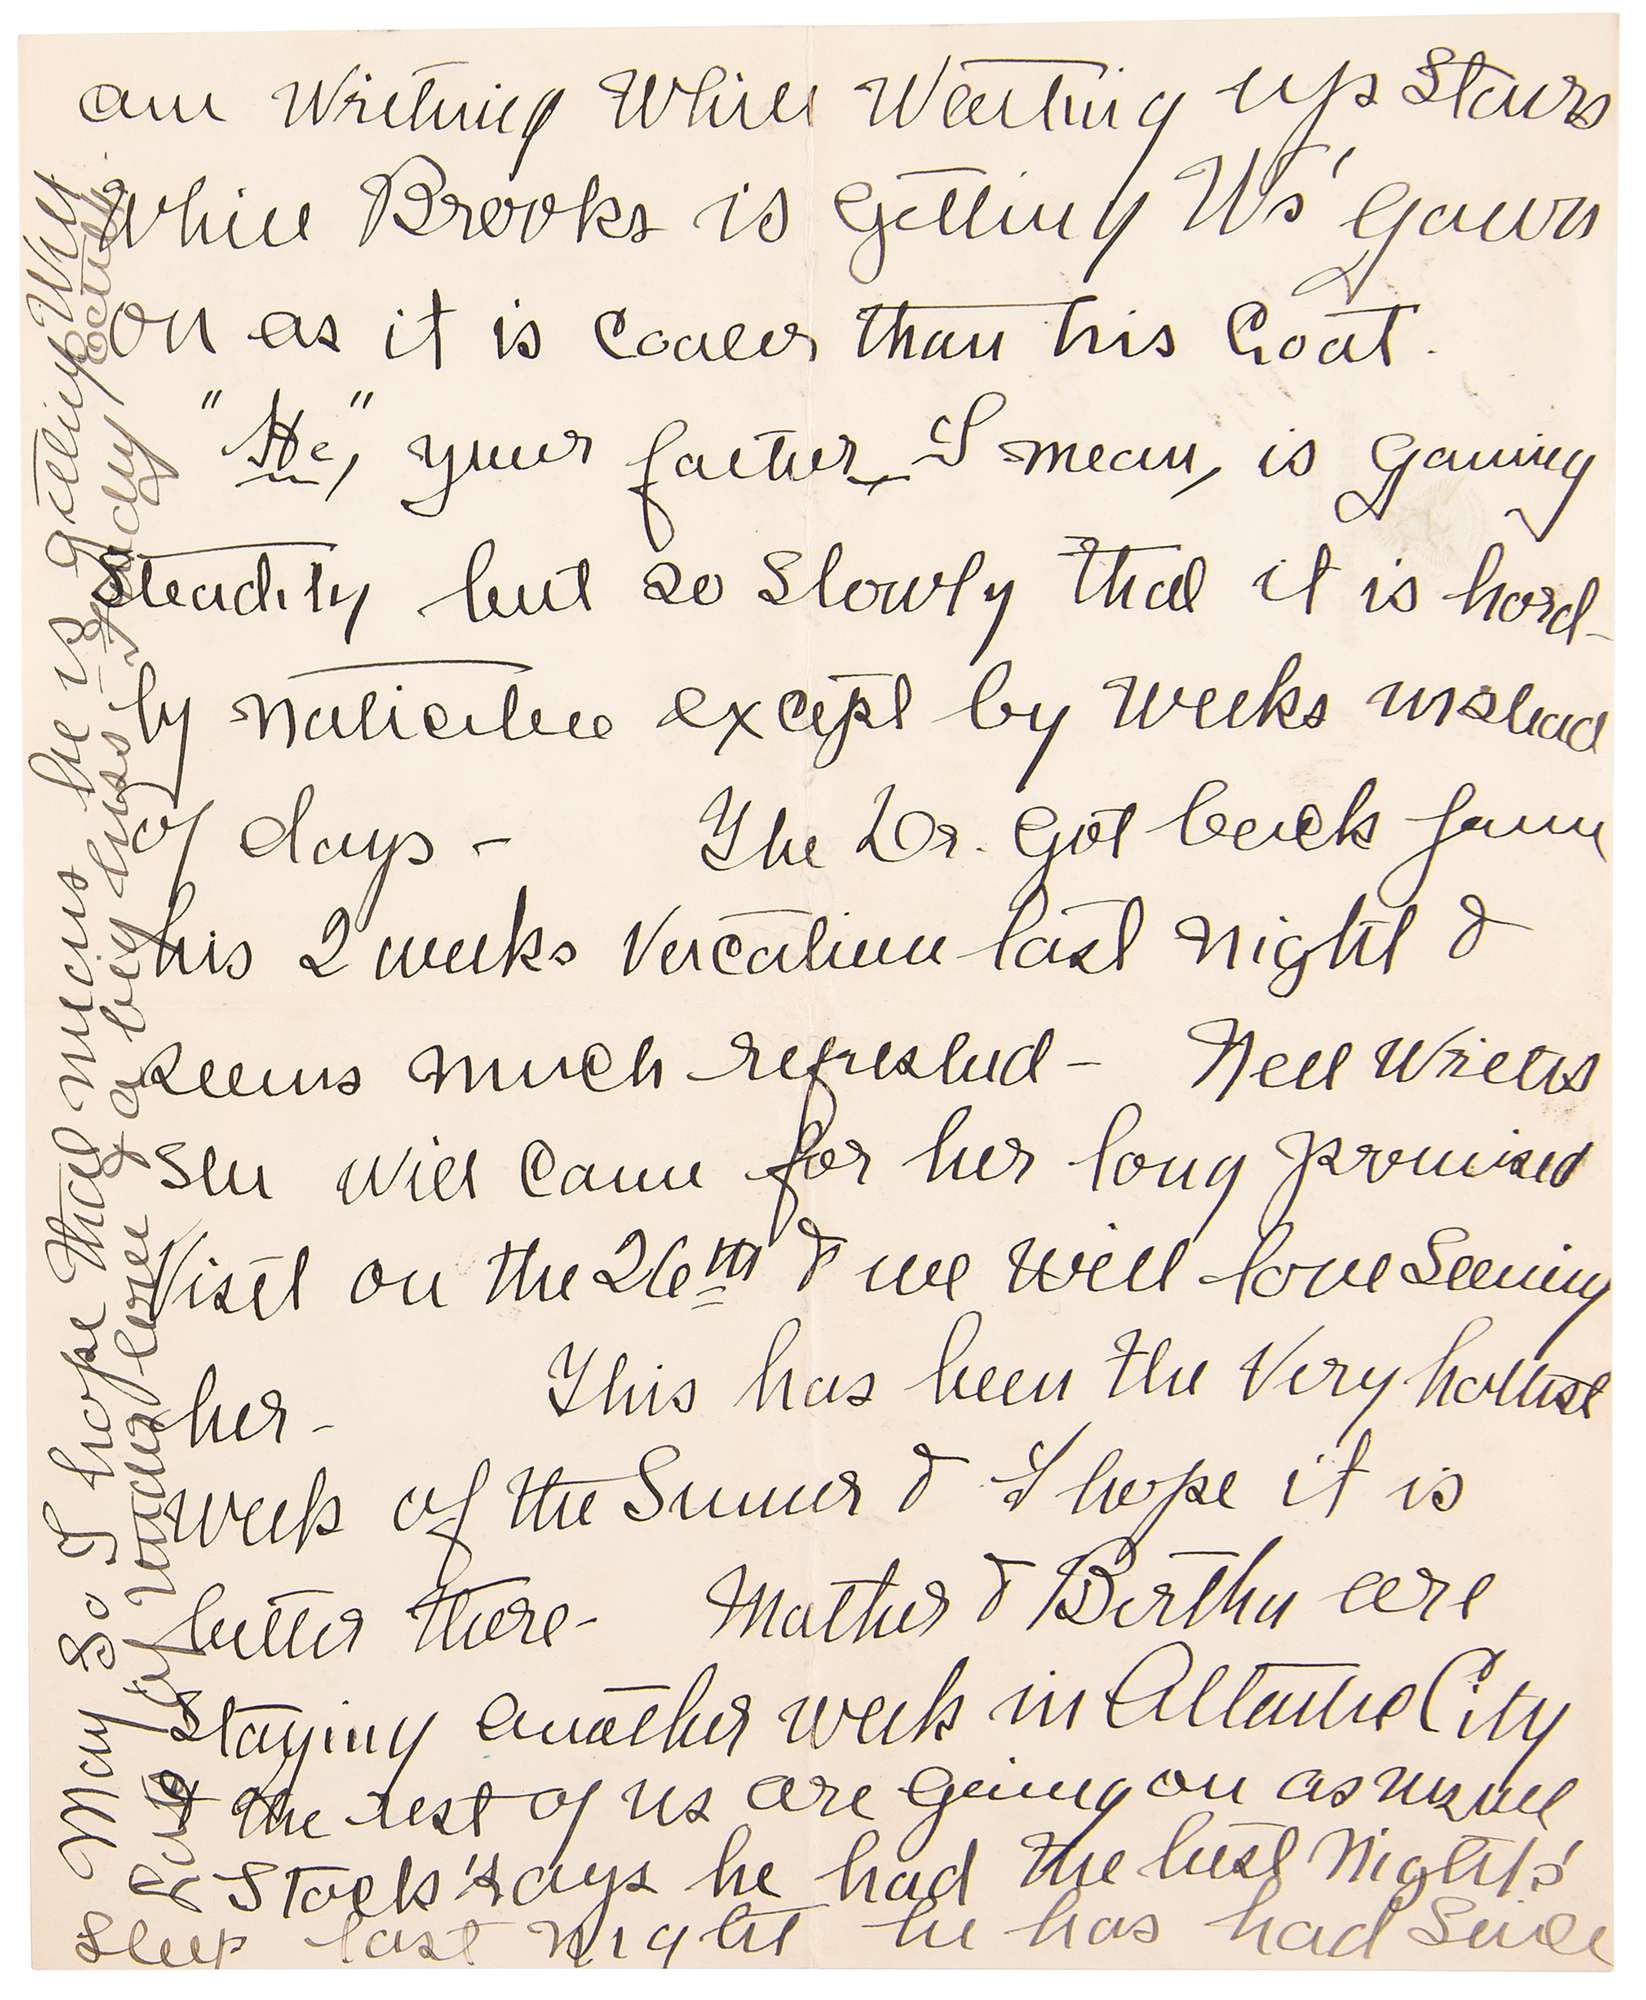 am Writing While Waiting up Stairs
while Brooks is getting W's' gown
on as it is cooler than his Coat.
"He", your father, I mean, is gaining
steadily but so slowly that it is hard-
ly noticible except by weeks instead
of days - The Dr. got back from
his 2 weeks vacation last night &
seems much refreshed - Nell writes
she will come for her long promised
visit on the 26th & we will love seeing
her - This has been the very hottest
week of the Sumer & I hope it is
better there - Mother & Bertha are
staying another week in Altantic City
& the rest of us are going on as usual
Stock' says he had the best night's'
sleep last night he has had since
May So I hope that means he is getting Well
Love of your love & a big kiss Devotedly, Edith.